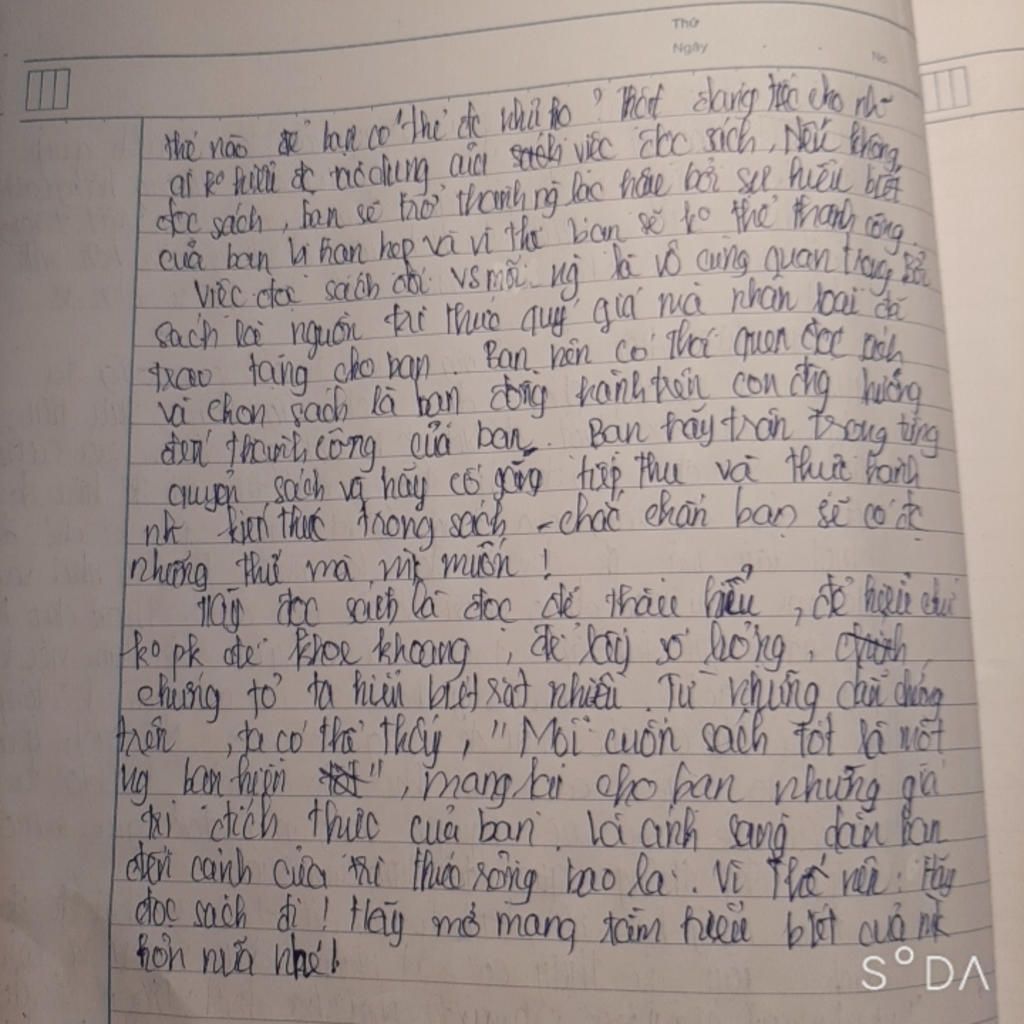 Thứ
Ngày
No
thế nào để bạn có thể đc như họ? Thật đáng tiếc cho nh~
ai ko hiểu đc tác dụng của việc đọc sách. Nếu không
đọc sách, bạn sẽ trở thành ng lạc hậu bởi sự hiểu biết
của bạn bị hạn hẹp và vì thế bạn sẽ ko thể thành công.
Việc đọc sách đối vs mỗi ng là vô cùng quan trọng. Bởi
sách là nguồn tri thức quý giá mà nhân loại đã
trao tặng cho bạn. Bạn nên có thói quen đọc sách
và chọn sách là bạn đồng hành trên con đg hướng
đến thành công của bạn. Bạn hãy trân trọng từng
quyển sách và hãy cố gắng tiếp thu và thực hành
nh kiến thức trong sách - chắc chắn bạn sẽ có đc
những thứ mà mk muốn!
Hãy đọc sách là đọc để thấu hiểu, để hiểu chứ
ko pk để khoe khoang, để lấy số lượng,
chứng tỏ ta hiểu biết rất nhiều. Từ những dẫn chứng
trên, ta có thể thấy, "Mỗi cuốn sách tốt là một
ng bạn hiền", mang lại cho bạn những giá
trị đích thực của bạn. Là ánh sáng dẫn bạn
đến cánh cửa tri thức rộng bao la. Vì thế nên: Hãy
đọc sách đi! Hãy mở mang tầm hiểu biết của mk
hơn nữa nhé!
S°DA